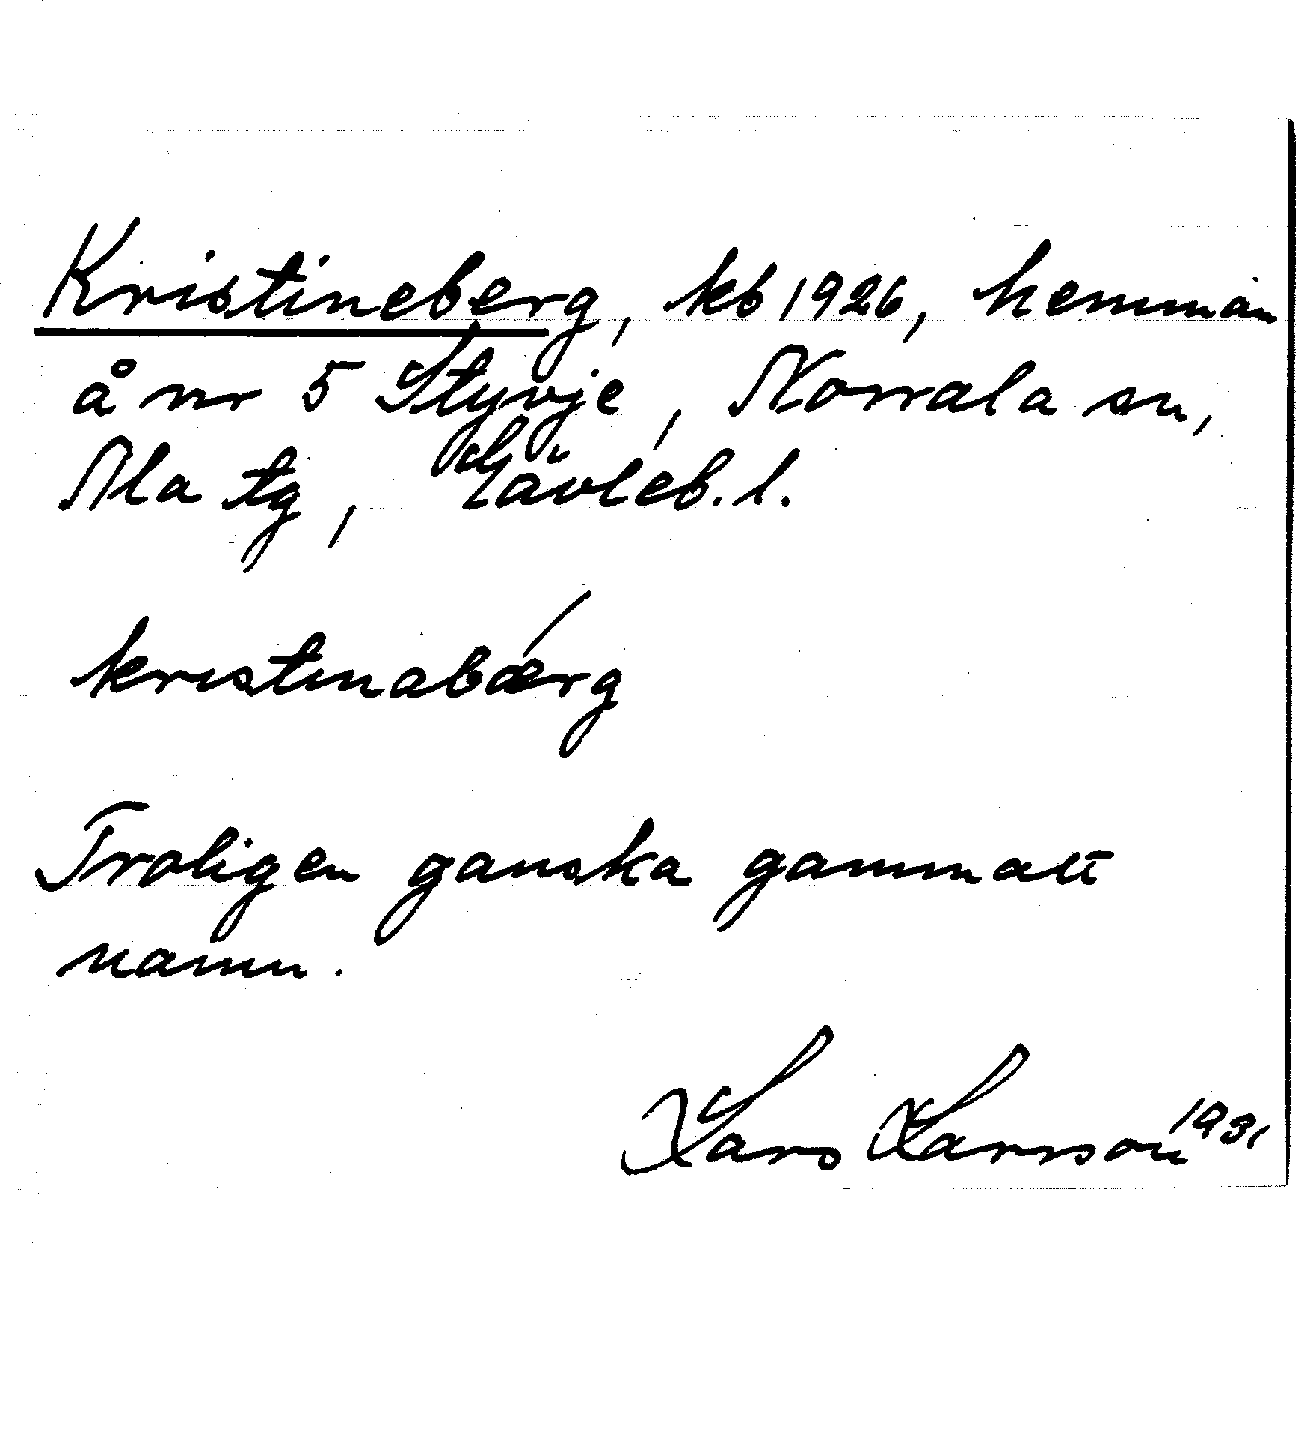 Kristineberg, kb 1926, hemman
å nr 5 Styvje, Norrala sn,
Nla tg, Gävleb. l.
kristinabærg
Troligen ganska gammalt
namn.
Lars Larsson 1931